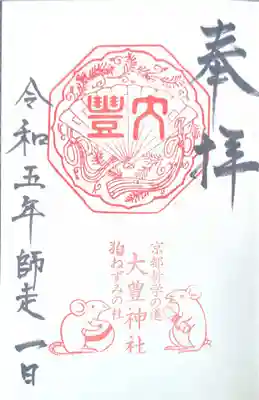 奉拝
大豐
京都哲学の道
大豊神社
狛ねずみの社
令和五年師走一日